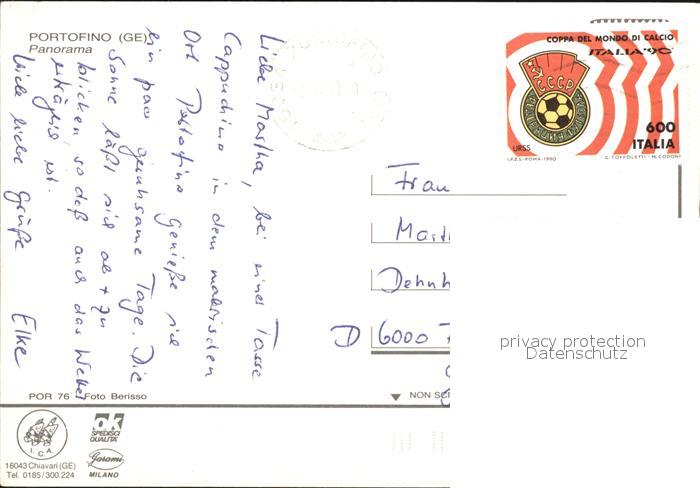 PORTOFINO (GE)
Panorama
Liebe Martha, bei einer Tasse
Cappuchino in dem malerischen
Ort Portofino genieße ich
ein paar geruhsame Tage. Die
Sonne läßt sich ab + zu
blicken, so daß auch das Wetter
erträglich ist.
Viele liebe Grüße
Elke
COPPA DEL MONDO DI CALCIO
ITALIA '90
CCCP
URSS
600
ITALIA
I.P.Z.S.-ROMA-1990
G. TOFFOLETTI - M. CODONI
Frau
Mart
Dehnh
D 6000 F
privacy protection
Datenschutz
POR 76
Foto Berisso
NON SC
I.G.A.
16043 Chiavari (GE)
Tel. 0185/300.224
OK
SPEDISCI
QUALITÀ
Garami
MILANO